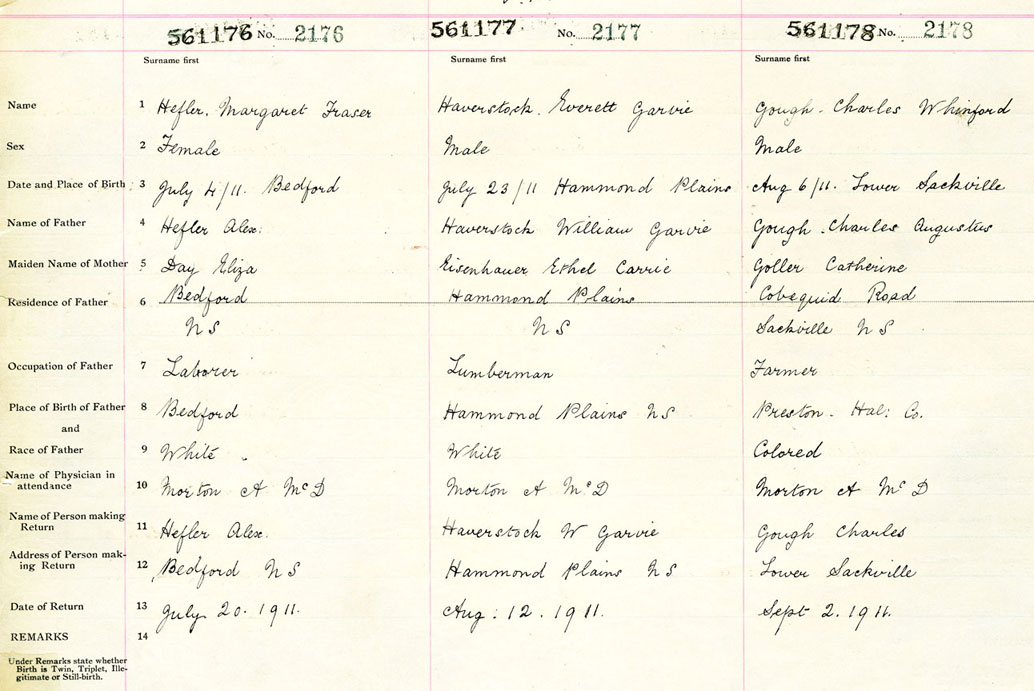 561176 No. 2176 561177 No. 2177 561178 No. 2178
Surname first Surname first Surname first
Name 1 Hefler. Margaret Fraser Haverstock. Everett Garvie Gough. Charles Whinford
Sex 2 Female Male Male
Date and Place of Birth 3 July 4/11. Bedford July 23/11 Hammond Plains Aug 6/11. Lower Sackville
Name of Father 4 Hefler Alex. Haverstock William Garvie Gough. Charles Augustus
Maiden Name of Mother 5 Day Eliza Eisenhauer Ethel Carrie Goller Catherine
Residence of Father 6 Bedford Hammond Plains Cobequid Road
N S N S Sackville N S
Occupation of Father 7 Laborer Lumberman Farmer
Place of Birth of Father 8 Bedford Hammond Plains NS Preston. Hal: Co.
and
Race of Father 9 White White Colored
Name of Physician in
attendance 10 Morton A McD Morton A McD Morton A McD
Name of Person making
Return 11 Hefler Alex. Haverstock W Garvie Gough Charles
Address of Person mak-
ing Return 12 Bedford NS Hammond Plains NS Lower Sackville
Date of Return 13 July 20. 1911. Aug: 12. 1911. Sept 2. 1911.
REMARKS 14
Under Remarks state whether
Birth is Twin, Triplet, Ille-
gitimate or Still-birth.